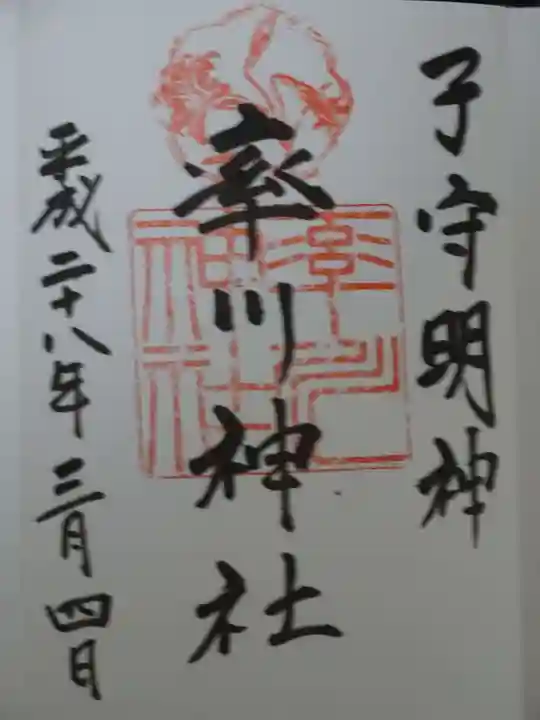 子守明神
率川神社
平成二十八年三月四日